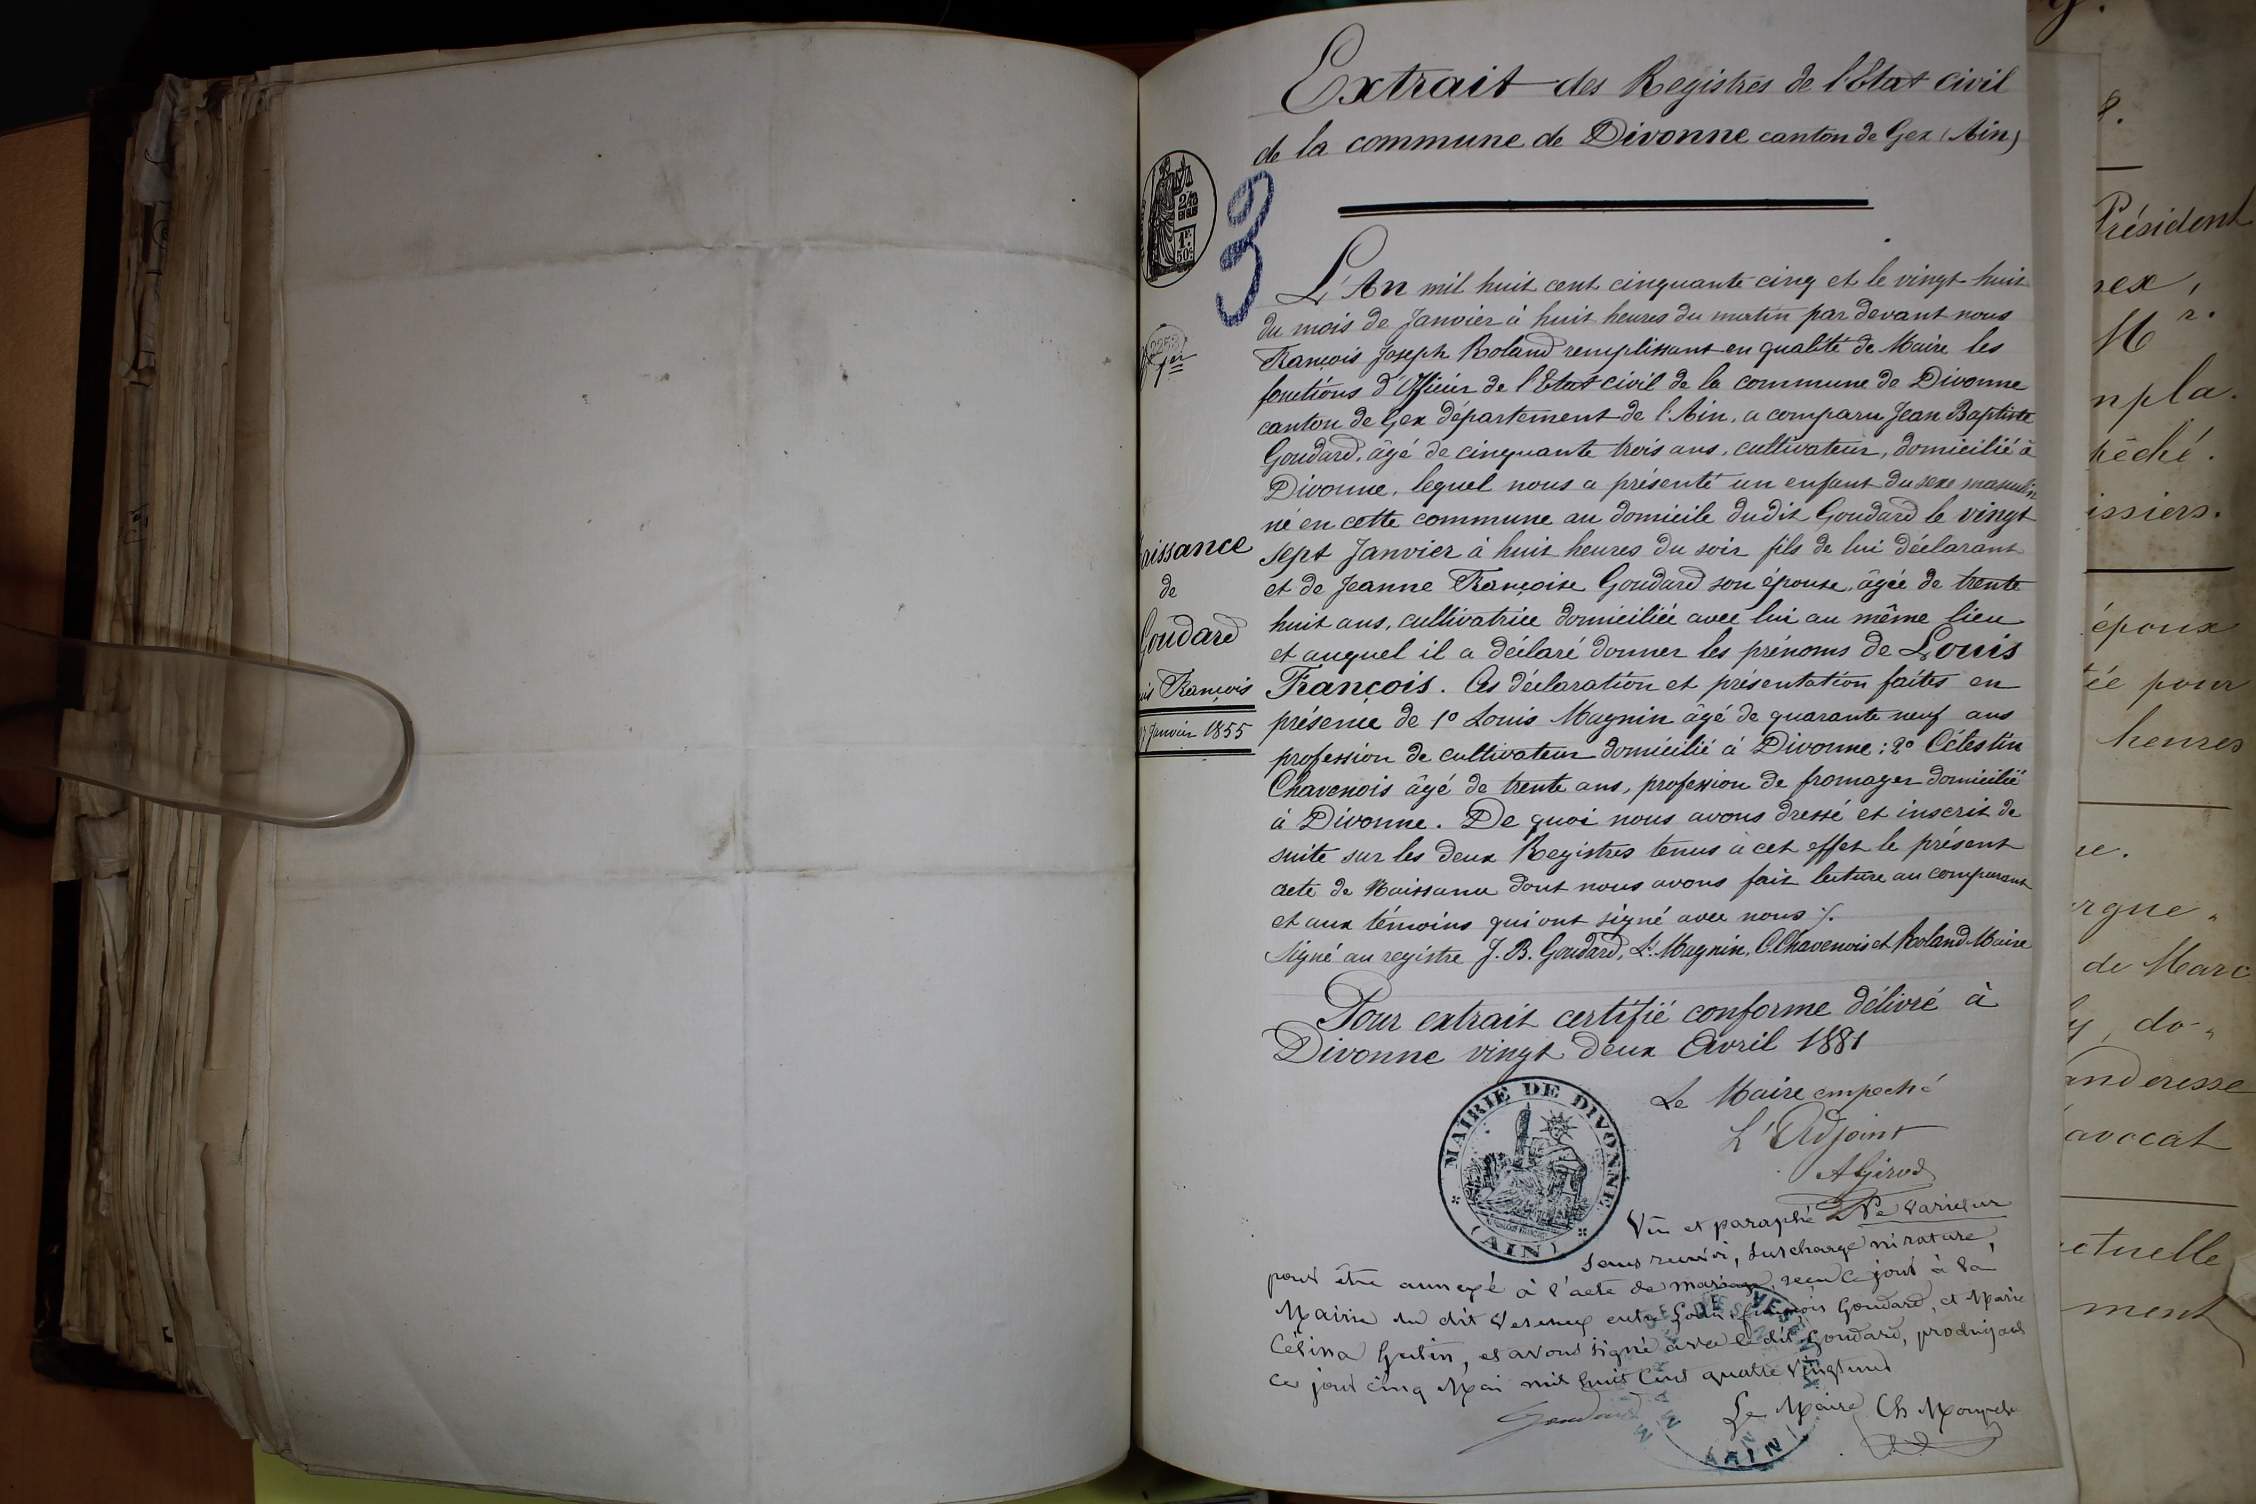 Extrait des Registres de l'Etat civil
de la commune de Divonne canton de Gex (Ain)
2/10
EN SUS
1F.
50c.
39
L'An mil huit cent cinquante cinq et le vingt huit
du mois de Janvier à huit heures du matin par devant nous
François Joseph Roland remplissant en qualité de Maire les
fonctions d'Officier de l'Etat civil de la commune de Divonne
canton de Gex département de l'Ain, a comparu Jean Baptiste
Goudard, âgé de cinquante trois ans, cultivateur, domicilié à
Divonne, lequel nous a présenté un enfant du sexe masculin
né en cette commune au domicile dudit Goudard le vingt
sept Janvier à huit heures du soir fils de lui déclarant
et de Jeanne Françoise Goudard son épouse, âgée de trente
huit ans, cultivatrice domiciliée avec lui au même lieu
et auquel il a déclaré donner les prénoms de Louis
François. Ces déclaration et présentation faites en
présence de 1º Louis Magnin âgé de quarante neuf ans
profession de cultivateur domicilié à Divonne : 2º Célestin
Chavenois âgé de trente ans, profession de fromager domicilié
à Divonne. De quoi nous avons dressé et inscrit de
suite sur les deux Registres tenus à cet effet le présent
acte de Naissance dont nous avons fait lecture au comparant
et aux témoins qui ont signé avec nous /.
Signé au registre J. B. Goudard, Ls. Magnin, C. Chavenois et Roland Maire
aissance
de
Goudard
uis François
7 Janvier 1855
Pour extrait certifié conforme délivré à
Divonne vingt deux Avril 1881
Le Maire empeché
L'Adjoint
A Girod
MAIRIE DE DIVONNE
(AIN)
Vu et paraphé Ne varietur
sans renvoi, surcharge ni rature,
pour être annexé à l'acte de mariage, reçu ce jour à la
Mairie du dit Vesenex entre Louis françois Goudard, et Marie
Célina Gutin, et avons signé avec le dit Goudard, produisant
ce jour cinq Mai mil huit Cent quatre vingt un
Goudard
Le Maire Ch
AIN
Président
nex,
Mr.
npla.
pêché.
issiers.
époux
tée pour
heures
re.
rgne,
de Marc
y, do-
anderesse
avocat
ctuelle
ment